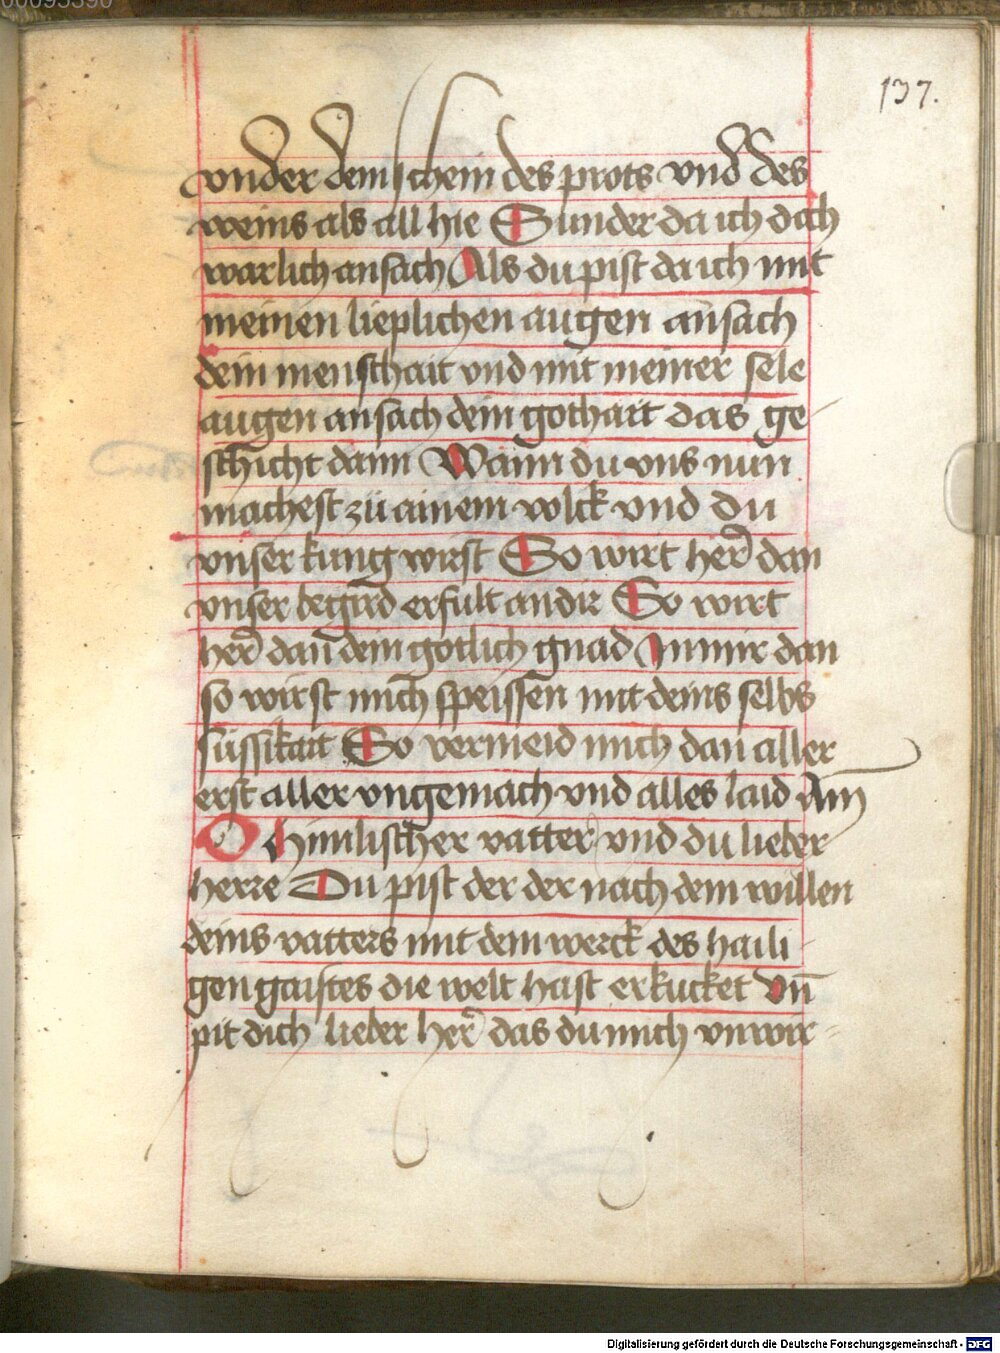 00095390
137.
vnder dem schein des prots vnd des
weins als all hie Sunder da ich dich
warlich ansach Als du pist da ich mit
meinen lieplichen augen ansach
dein menschait vnd mit meiner sele
augen ansach dein gothait das ge
schicht dann Wann du vns nun
machest zu ainem volck vnd du
vnser kung wirst So wirt her̄ dan
vnser begird erfult an dir So wirt
her̄ dan̄ dein gotlich gnad In mir dan
so wirst mich speissen mit deins selbs
sussikait So vermeid mich dan aller
erst aller vngemach vnd alles laid Am̄
O himlischer vatter vnd du lieber
herre Du pist der der nach dem willen
deins vatters mit dem werck des haili
gen gaistes die welt hast erkucket vn̄
pit dich lieber her̄ das du mich vnwir=
Digitalisierung gefördert durch die Deutsche Forschungsgemeinschaft - DFG